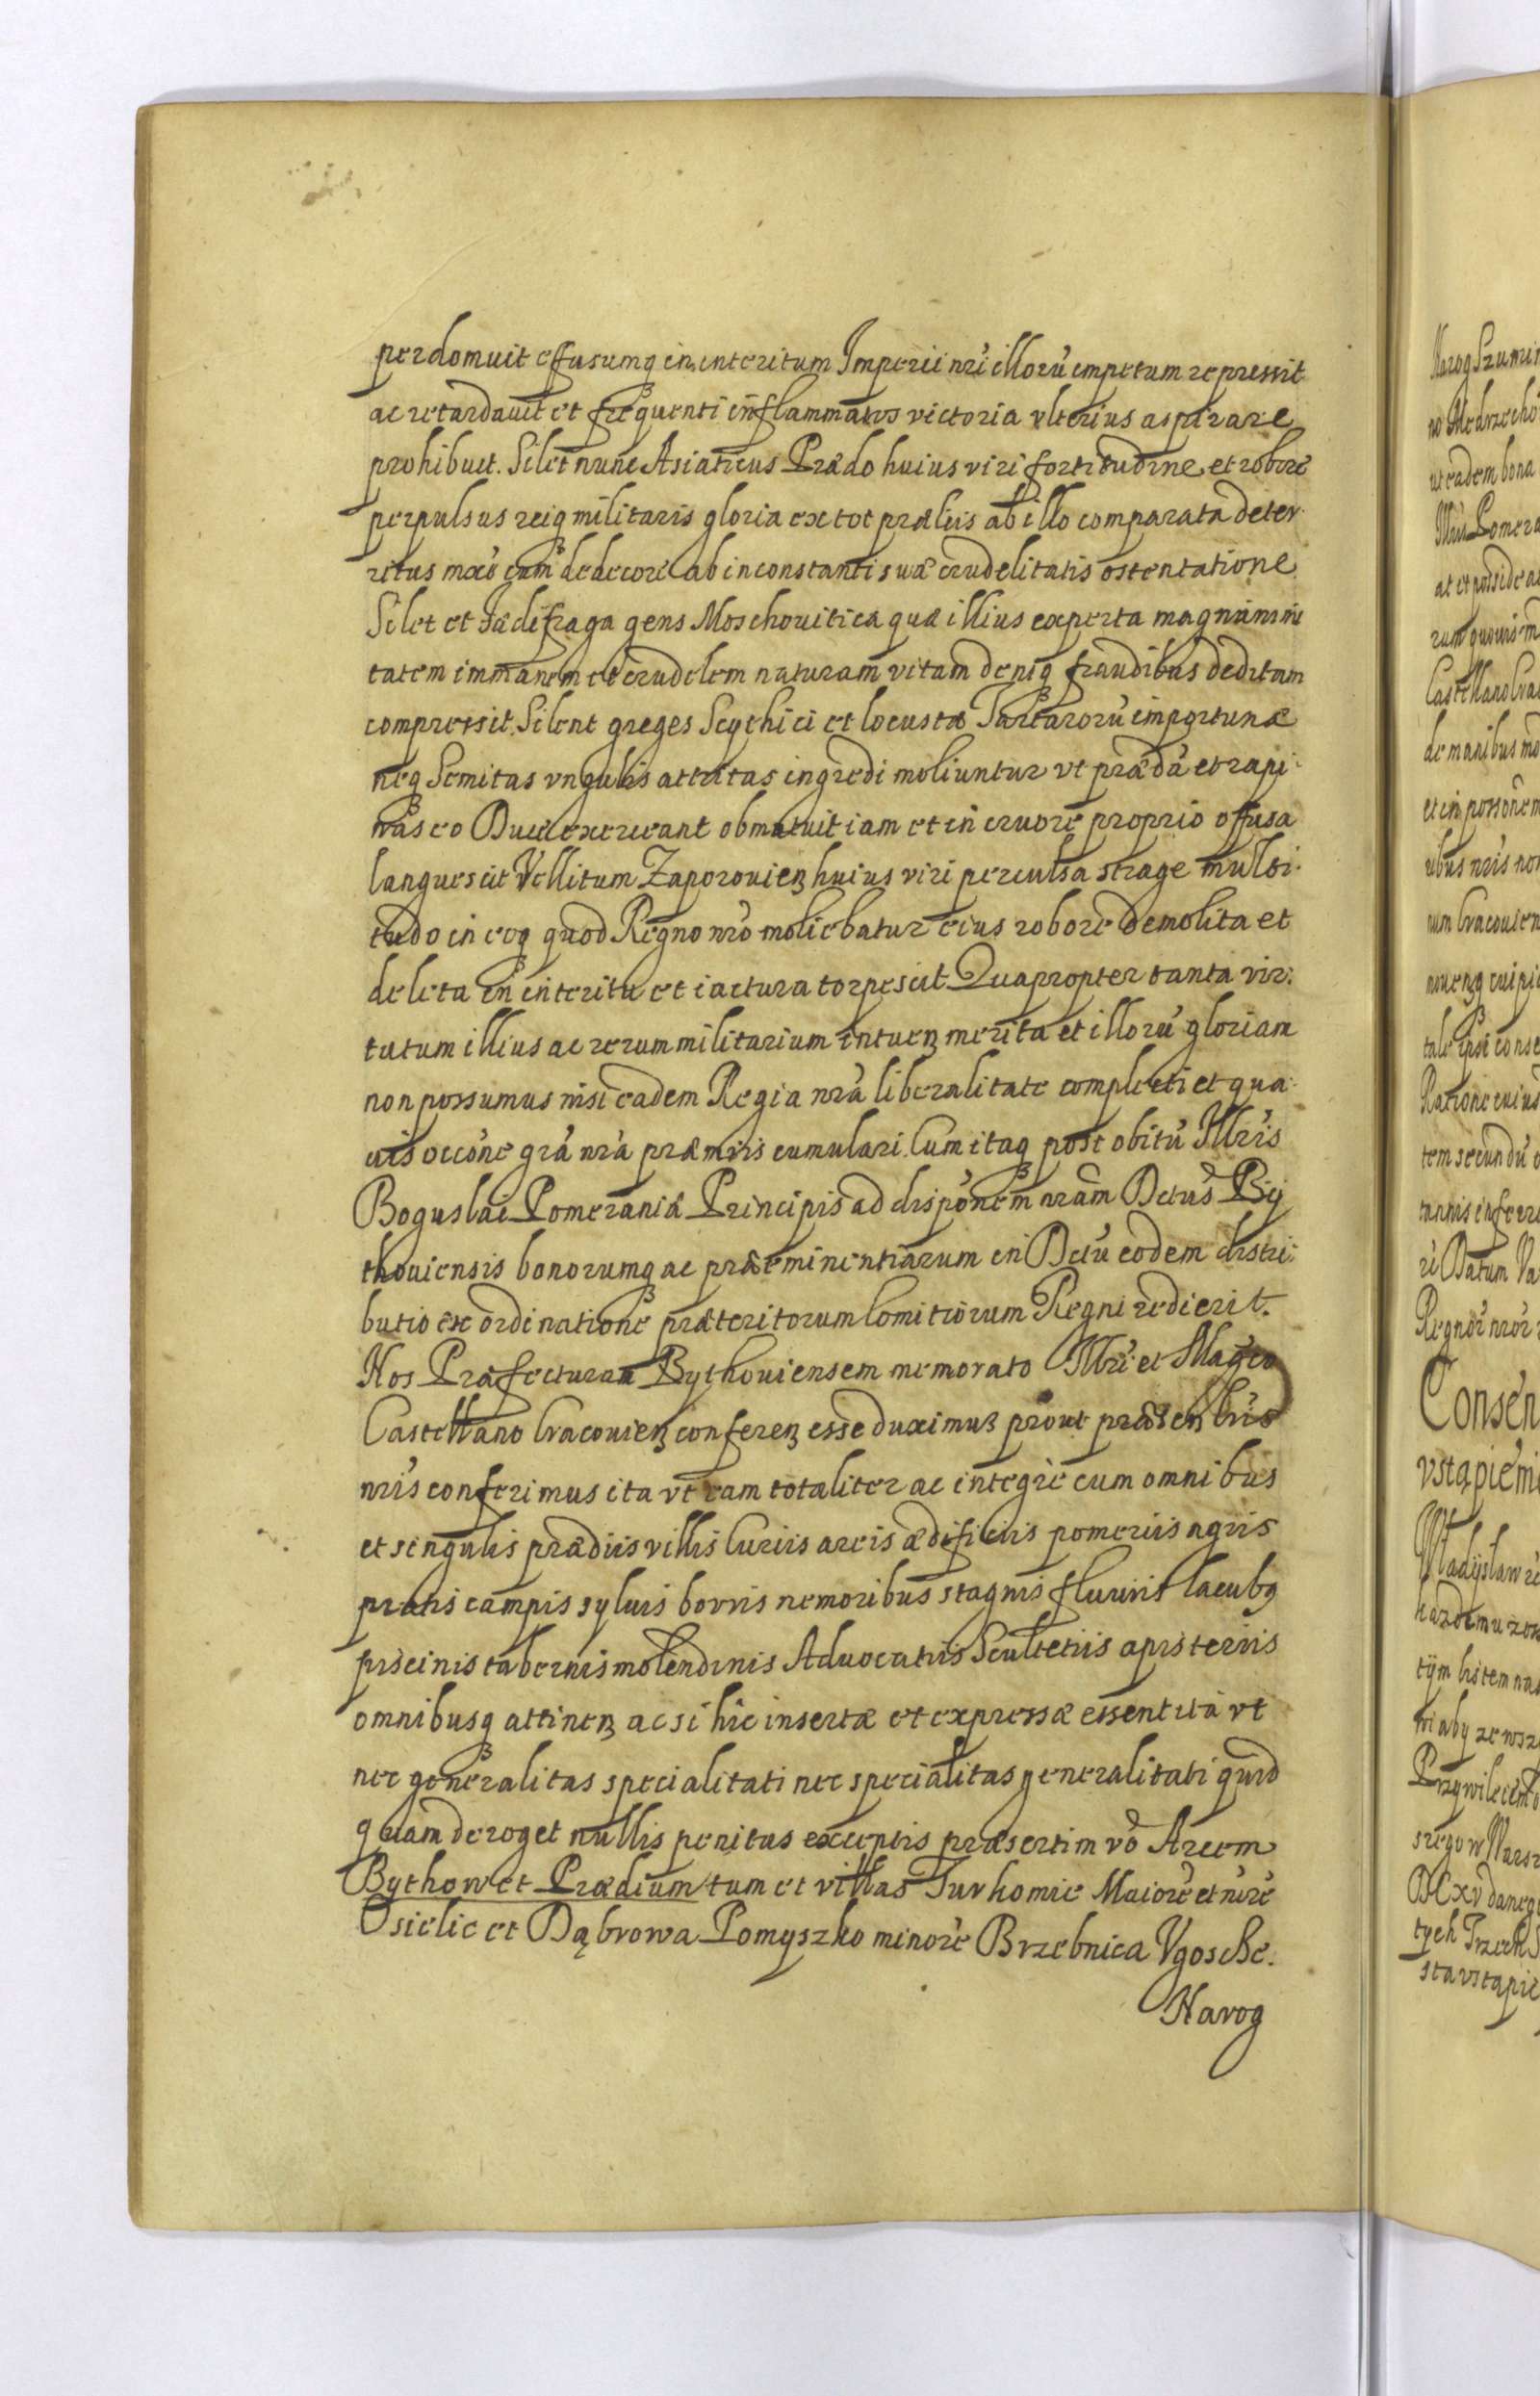 perdomuit effusumq in interitum Imperii nri illorũ impetum repressit
ac retardavit et frequenti inflammatos victoria vlterius aspirare
prohibuit. Silet nunc Asiaticus Prædo huius viri fortitudine et robore
perpulsus reiq militaris gloria ex tot præliis ab illo comparata deter
ritus maxõ cum dedecore ab inconstanti suæ crudelitatis ostentatione
Silet et fædifraga gens Moschovitica quæ illius experta magnanimi
tatem immanem et crudelem naturam vitam deniq fraudibus deditam
compressit. Silent greges Scythici et locustæ Tartarorũ importunæ
neq Semitas vngulis attritas ingredi moliuntur vt prædã et rapi
nas eo Duce exerceant obmutuit iam et in cruore proprio offusa
languescit Vellitum Zaporovien huius viri perculsa strage multi
tudo in eoq quod Regno nrõ moliebatur eius robore demolita et
deleta in interitu et iactura torpescit Quapropter tanta vir
tutum illius ac rerum militarium intuen merita et illorũ gloriam
non possumus nisi eadem Regia nrã liberalitate complecti et qua
uis occõne grã nrã præmiis cumulari. Cum itaq post obitũ Illris
Boguslai Pomeraniæ Principis ad dispõnem nram Dctus By
thoviensis bonorumq ac præeminentiarum in Dctũ eodem distri
butio ex ordinatione præteritorum Comitiorum Regni redierit.
Nos Præfecturam Bythoviensem memorato Illri et Magco
Castellano Cracovien conferen esse duximus prout præsen lris
nris conferimus ita vt eam totaliter ac integre cum omnibus
et singulis prædiis villis Curiis areis ædificiis pomeriis agris
pratis campis syluis borris nemoribus stagnis fluviis lacubq
piscinis tabernis molendinis Advocatiis Scultetiis apisteriis
omnibusq attinen ac si hic insertæ et expressæ essent ita vt
nec generalitas specialitati nec specialitas generalitati quid
quam deroget nullis penitus exceptis præsertim võ Arcem
Bythow et Prædium tum et villas Turhomie Maiore et nrore
Osielie et Dąbrowa Pomyszko minore Brzebnica Vgosche.
Narog